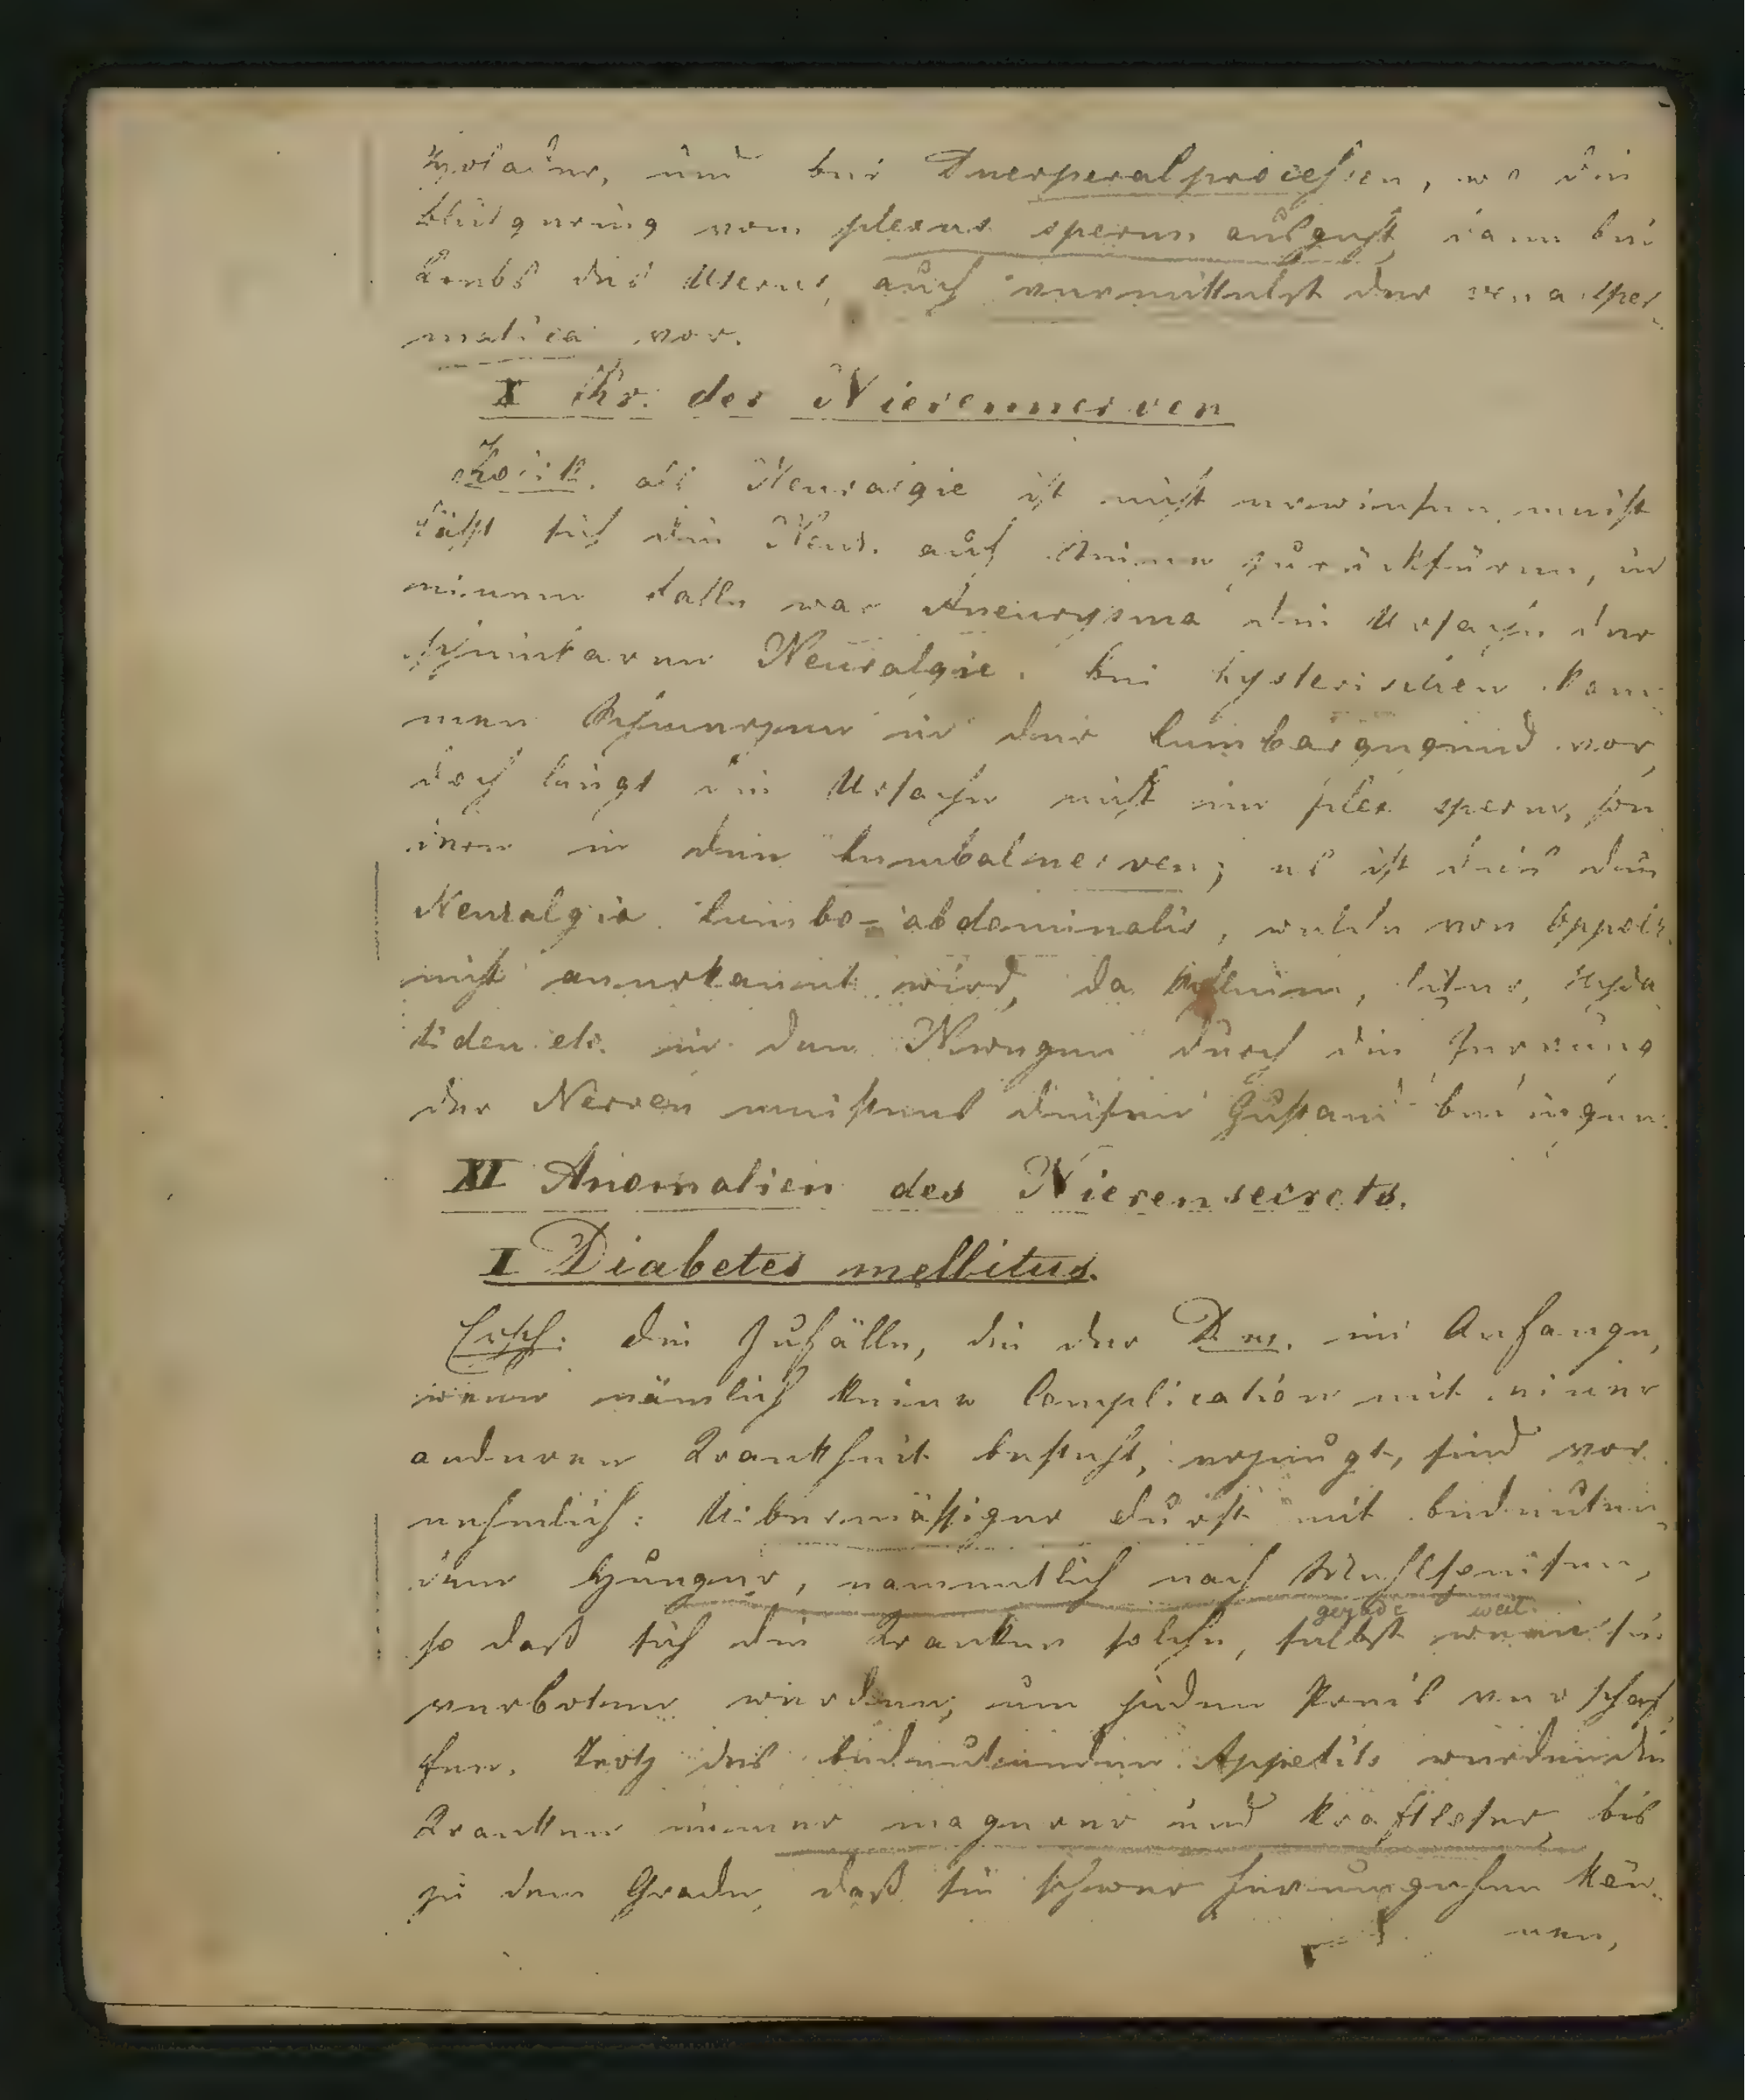 und bei Puerperalprocessen, wo die
Blutgerinng vom plexus sperm ausgeht, dann bei
Krebs des Uterus, auch vermittelst der vena sper-
matica vor.
X Kr. der Nierennerven
Kolik. als Neuralgie ist nicht erwiesen, meist
läßt sich die Neur. auf Steine zurückfüren, in
einem Falle war Aneurysma die Ursache der
scheinbaren Neuralgie. Bei hysterischen kom-
men Schmerzen in der Lumbargegend vor,
doch liegt die Ursache nicht im plex sperm, son
dern in den Lumbalnerven; es ist dies die
Neuralgia lumbo-abdominalis, welche von Oppolz.
nicht anerkannt wird, da Hyda
tiden etc. in den durch die Zerrung
der Nerven meistens diesen Zustand bedingen.
XI Anomalien des Nierensecrets.
I Diabetes mellitus.
Ersch: die Zufälle, die der D. m. im Anfange,
wenn nämlich keine Complication mit einer
anderen Krankheit besteht, erzeugt, sind vor
nehmlich: Uibermässiger Durst mit bedeuten-
dem Hunger, namentlich nach Mehlspeisen,
gerade weil
so daß sich die Kranken solche, selbst wenn sie
verboten werden, um jeden Preis verschaf
fen. Trotz des bedeutenden Appetits werden die
Kranken immer magerer und kraftloser, bis
zu dem Grade, daß sie schwer herumgehen kön-
nen,